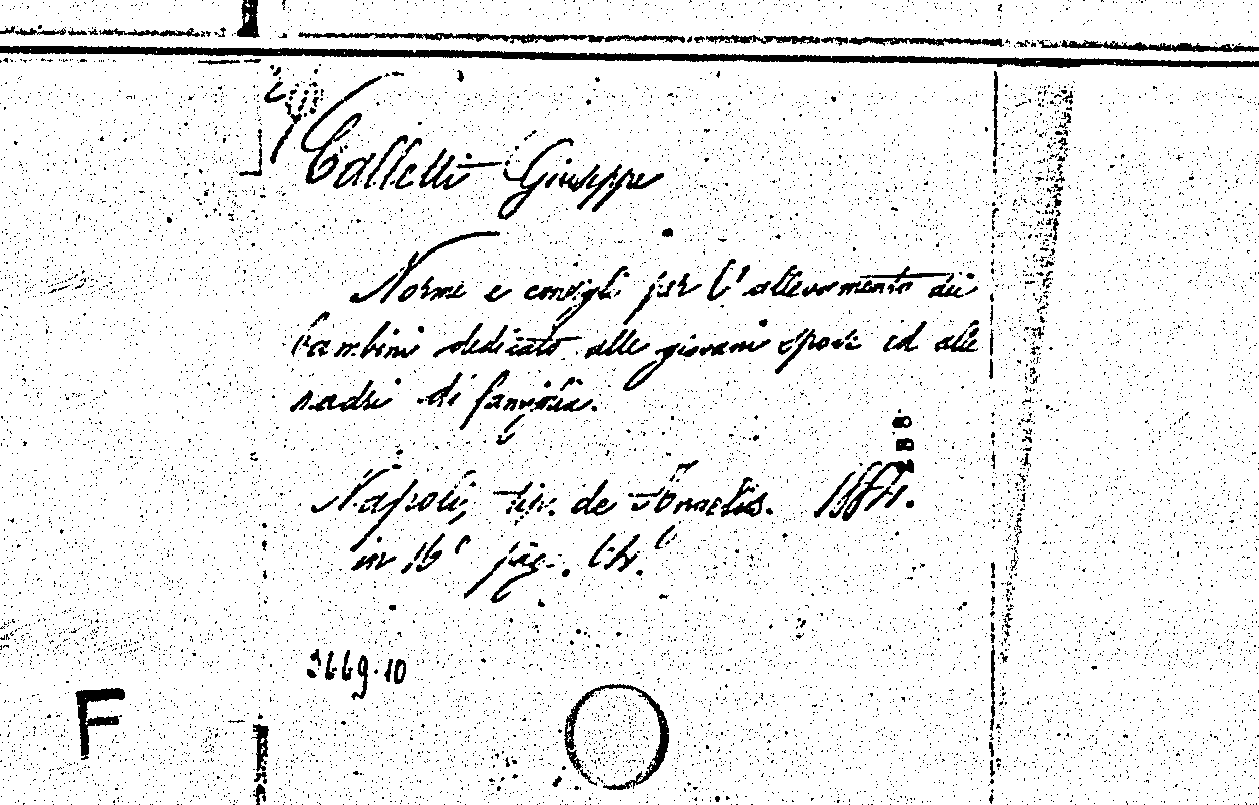 Calletti Giuseppe
Norme e consigli per l'allevamento dei
bambini dedicato alle giovani spose ed alle
madri di famiglia.
Napoli, tip. de Angelis. 1874.
in 16° pag. 64.
3669.10
F